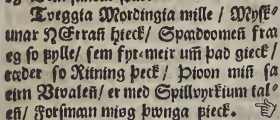 Tveggia Mordingia mille / Mysk-
unar HErran hieck / Spaadoomeñ fraa
eg so fylle / sem fyr-meir um̃ pad gieck /
rædet so Ritning þeck / Þioon miñ sa
eirn Utvaleñ / er med Spillvyrkium tal-
eñ / Forsmaan miøg þunga fieck.